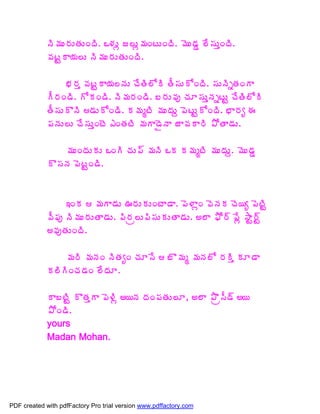 నిమురుతుంది. ఒళ్లు జల్లు మంటుంది. మొడ్డ లేస్తుంది.
వట్టకాయలు నిమురుతుంది.
భర్త వట్టకాయలను చేతిలోకి తీసుకోండి. సున్నితంగా
గీరండి. గోకండి. నిమరండి. బరువు చూస్తున్నట్టు చేతిలోకి
తీసుకొని ఆడుకోండి. కమ్మటి ముద్దు పెట్టుకోండి. భార్య ఈ
పనులు చేస్తుంటె ఎంతటి మగాడైనా జావకారి పోతాడు.
ముందుకు ఒంగి చున్ మని ఒక కమ్మటి ముద్దు. మొడ్డ
కొసన పెట్టండి.
ఇంక ఆ మగాడు ఊరుకుంటాడా. పెళ్లాం వెనక చెయ్యి పెట్టి
వీపు నిమురుతాడు. పిర్రలుపిసుకుతాడు. అలా ఫోర్ ప్లే స్టార్ట్
అవుతుంది.
మరి మనం నిత్యం చూసే ఆ బొమ్మ మనలో రక్తి కూడా
కలిగించడం లేదూ.
కాబట్టి కొత్తగా పెళ్లి అయిన దంపతులూ, అలా ప్రొసీడ్ అయి
పోండి.
yours
Madan Mohan.
PDF created with pdfFactory Pro trial version www.pdffactory.com